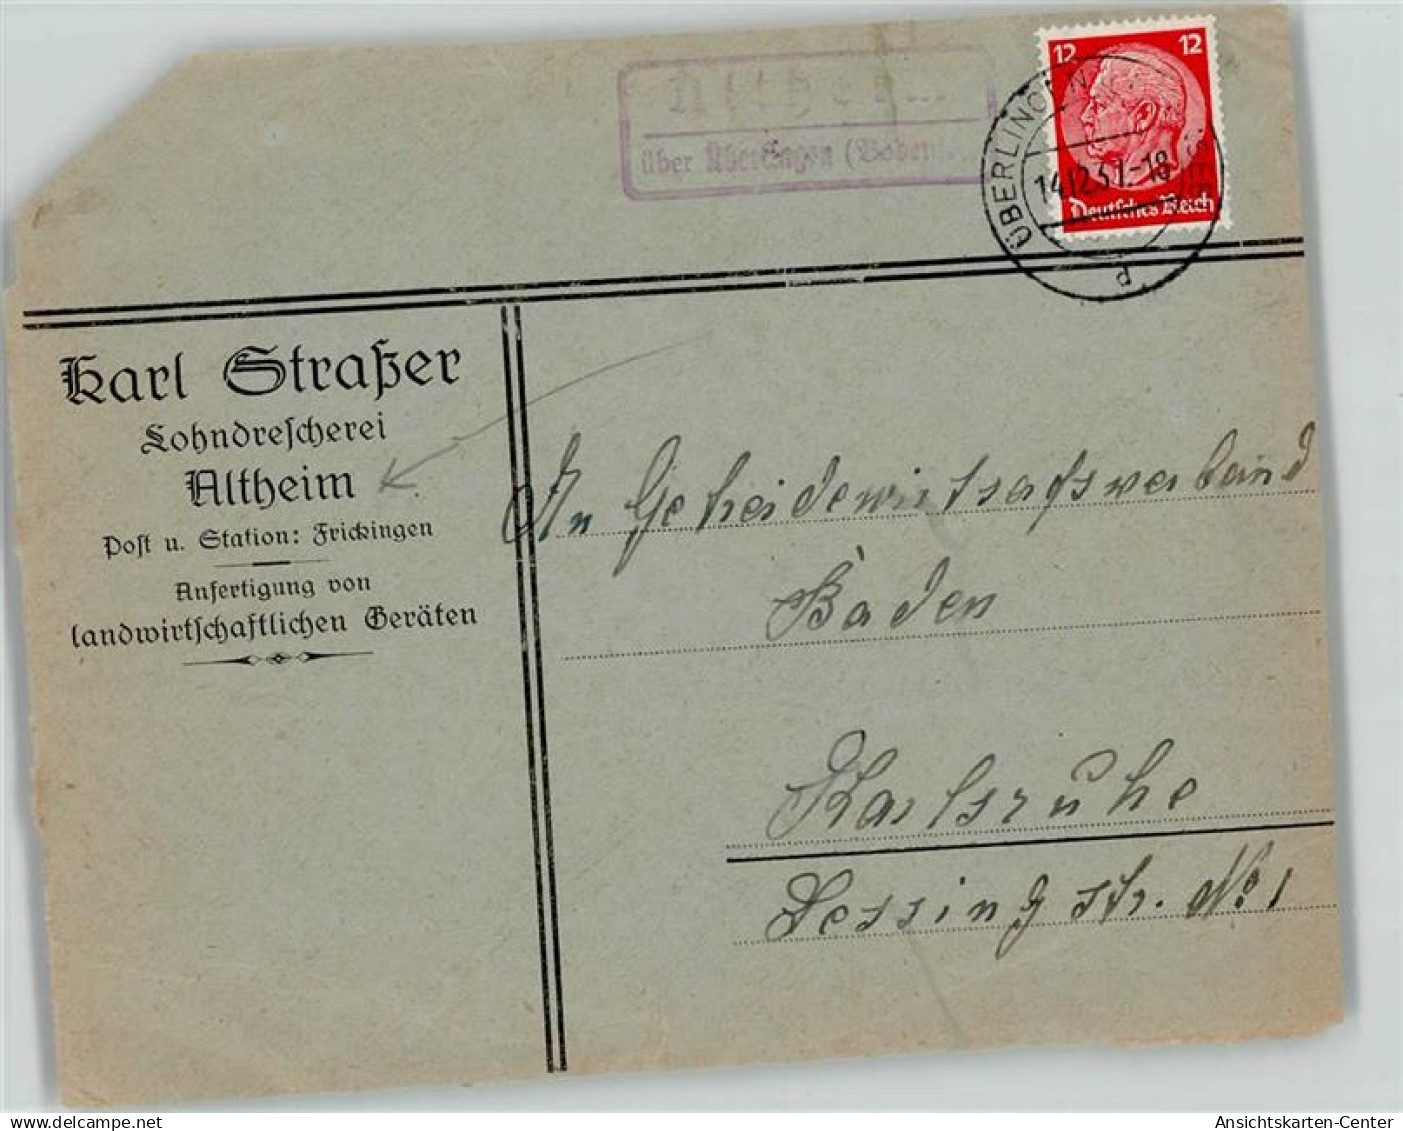 12 12
Deutsches Reich
ÜBERLINGEN
14.12.37.-18
d
über Überlingen
Karl Straßer
Lohndrescherei
Altheim
Post u. Station: Frickingen
Anfertigung von
landwirtschaftlichen Geräten
An Geheidewirtsafsverband
Baden
Karlsruhe
Lessingstr. No. 1
Ansichtskarten-Center